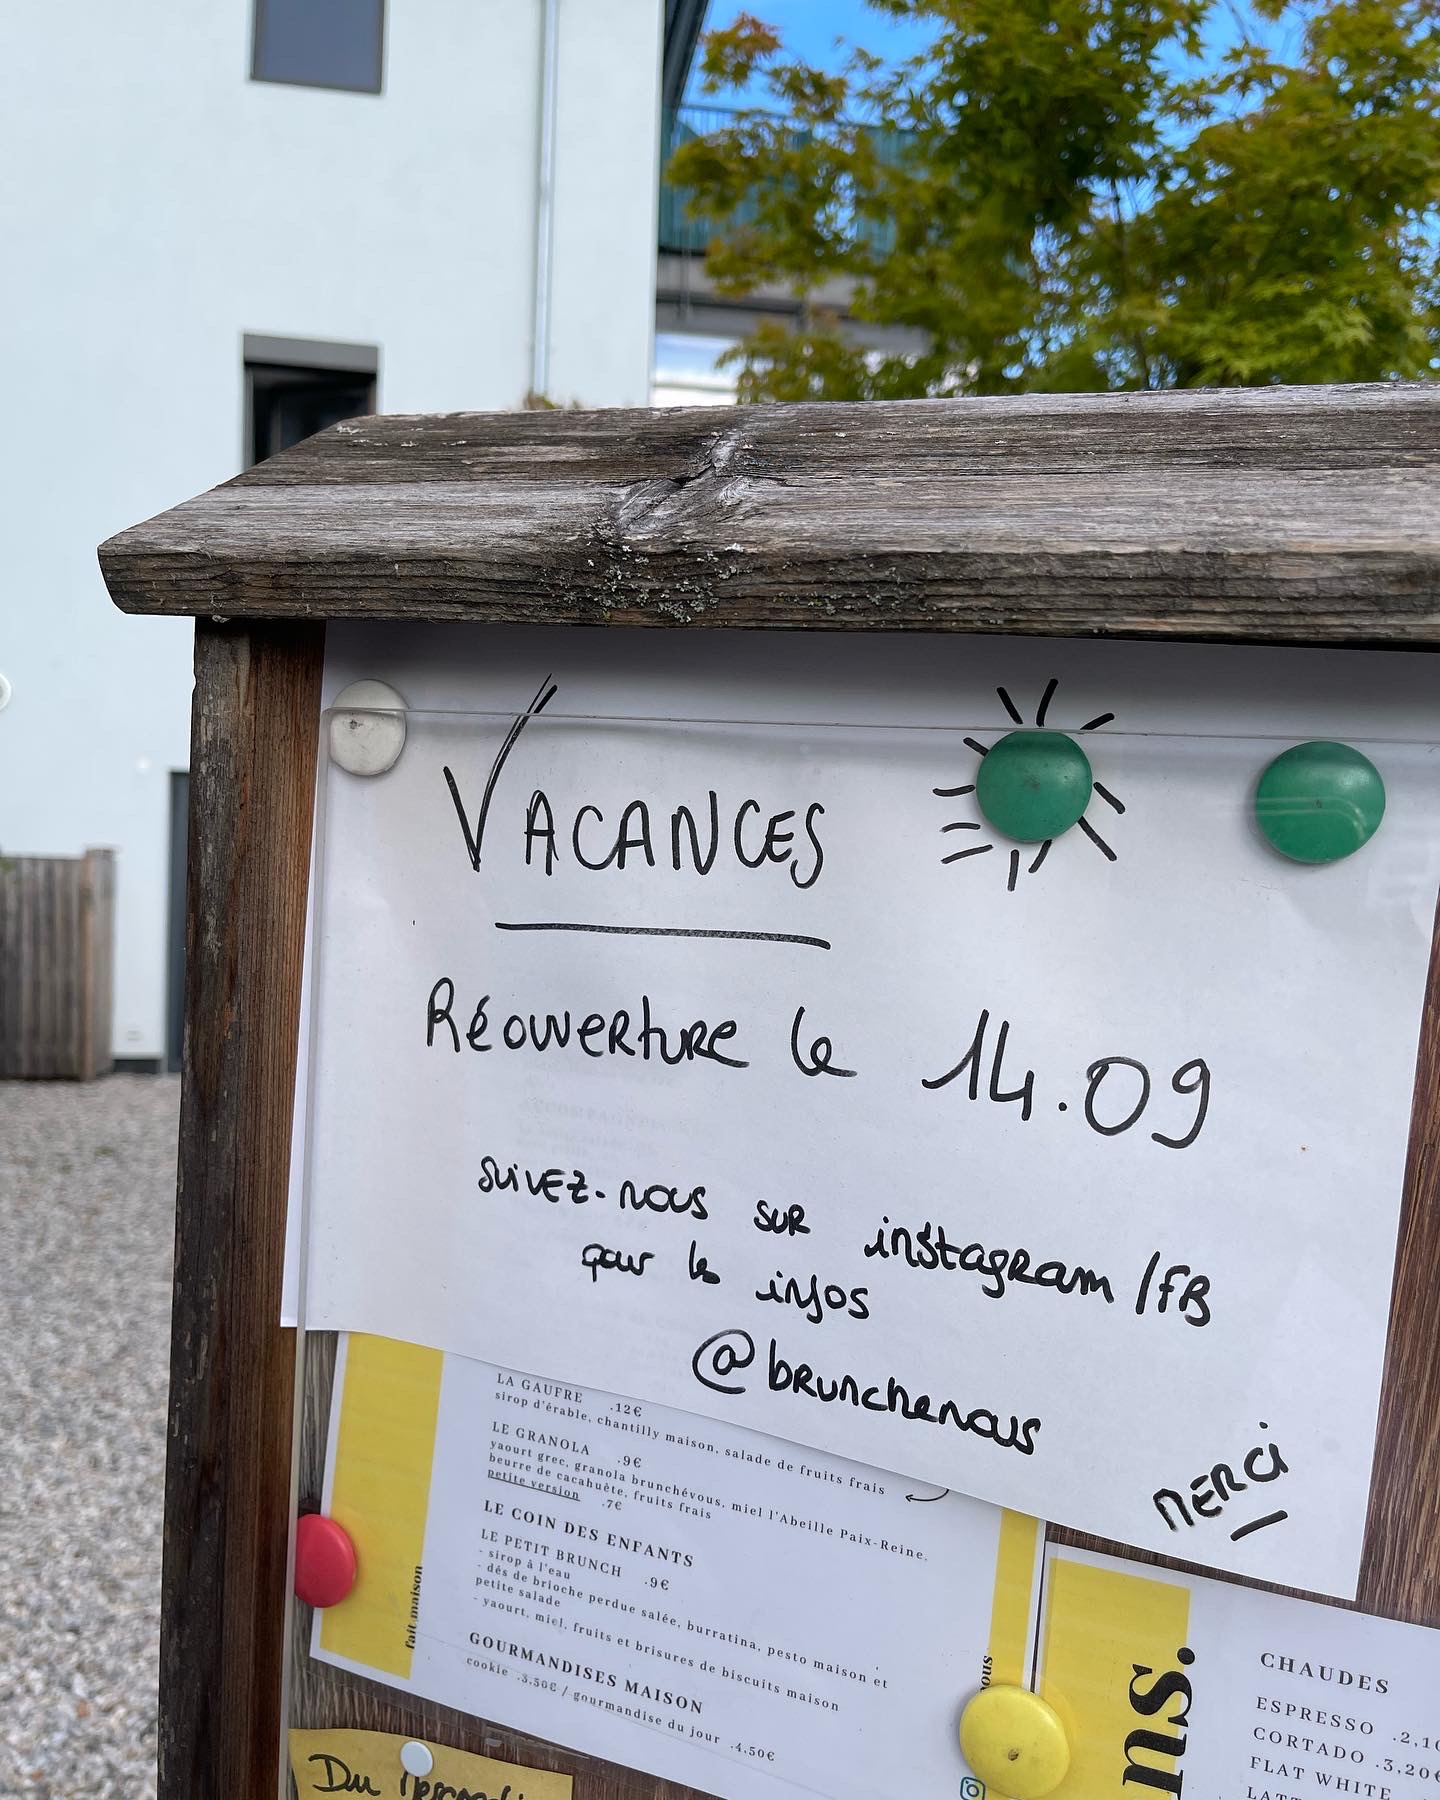 VACANCES
Réouverture le 14.09
suivez-nous sur instagram/FB
pour les infos
@brunchenous
MERCI
LA GAUFRE .12€
sirop d'érable, chantilly maison, salade de fruits frais
LE GRANOLA .9€
yaourt grec, granola brunchévous, miel l'Abeille Paix-Reine,
beurre de cacahuète, fruits frais
petite version .7€
LE COIN DES ENFANTS
LE PETIT BRUNCH .9€
- sirop à l'eau
- dés de brioche perdue salée, burratina, pesto maison et
petite salade
- yaourt, miel, fruits et brisures de biscuits maison
GOURMANDISES MAISON
cookie .3,50€ / gourmandise du jour .4,50€
fait maison
ns.
CHAUDES
ESPRESSO .2,10
CORTADO .3,20€
FLAT WHITE
LATT
Du